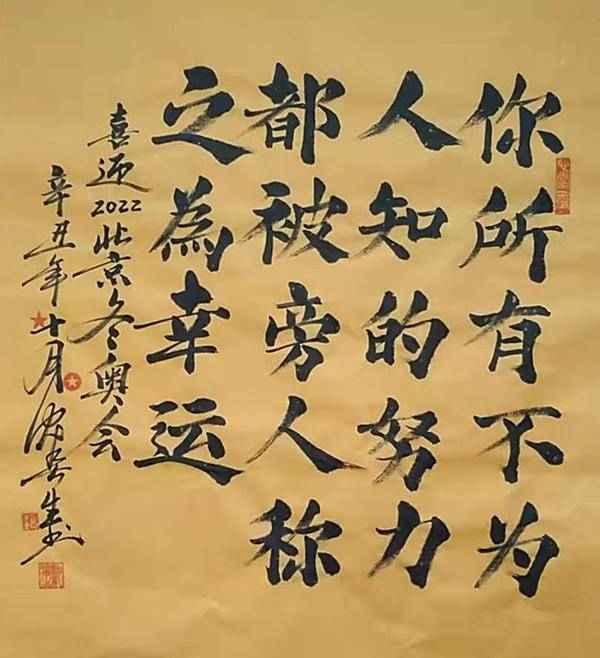 你所有不为
人知的努力
都被旁人称
之為幸运
喜迎2022北京冬奥会
辛丑年十月